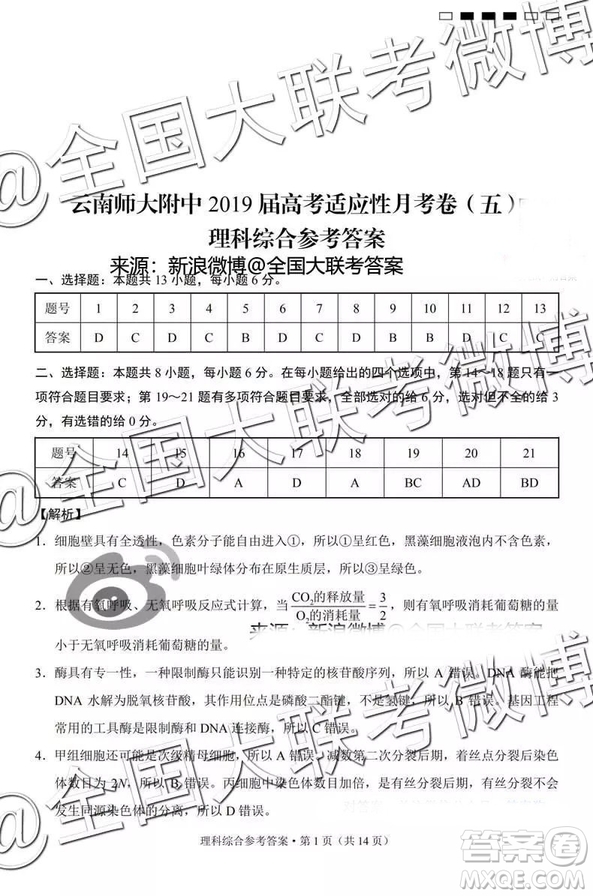 云南师大附中 2019 届高考适应性月考卷（五）
理科综合参考答案
来源：新浪微博@全国大联考答案
一、选择题：本题共 13 小题，每小题 6 分。
题号 1 2 3 4 5 6 7 8 9 10 11 12 13
答案 D C D C B D D B A B D C C
二、选择题：本题共 8 小题，每小题 6 分。在每小题给出的四个选项中，第 14～18 题只有一
项符合题目要求；第 19～21 题有多项符合题目要求，全部选对的给 6 分，选对但不全的给 3
分，有选错的给 0 分。
题号 14 15 16 17 18 19 20 21
答案 C D A D A BC AD BD
【解析】
1．细胞壁具有全透性，色素分子能自由进入①，所以①呈红色，黑藻细胞液泡内不含色素，
所以②呈无色，黑藻细胞叶绿体分布在原生质层，所以③呈绿色。
2．根据有氧呼吸、无氧呼吸反应式计算，当 CO₂的释放量/O₂的消耗量 = 3/2 ，则有氧呼吸消耗葡萄糖的量
来源：新浪微博@全国大联考答案
小于无氧呼吸消耗葡萄糖的量。
3．酶具有专一性，一种限制酶只能识别一种特定的核苷酸序列，所以 A 错误。DNA 酶能把
DNA 水解为脱氧核苷酸，其作用位点是磷酸二酯键，不是氢键，所以 B 错误。基因工程
常用的工具酶是限制酶和 DNA 连接酶，所以 C 错误。
4．甲组细胞还可能是次级精母细胞，所以 A 错误。减数第二次分裂后期，着丝点分裂染色
体数目为 2N，所以 B 错误。丙组细胞中染色体数目加倍，是有丝分裂后期，有丝分裂不会
发生同源染色体的分离，所以 D 错误。
理科综合参考答案·第 1 页（共 14 页）
@全国大联考微博
@全国大联考微博
@全国大联考微博
答案圈
MXQE.COM